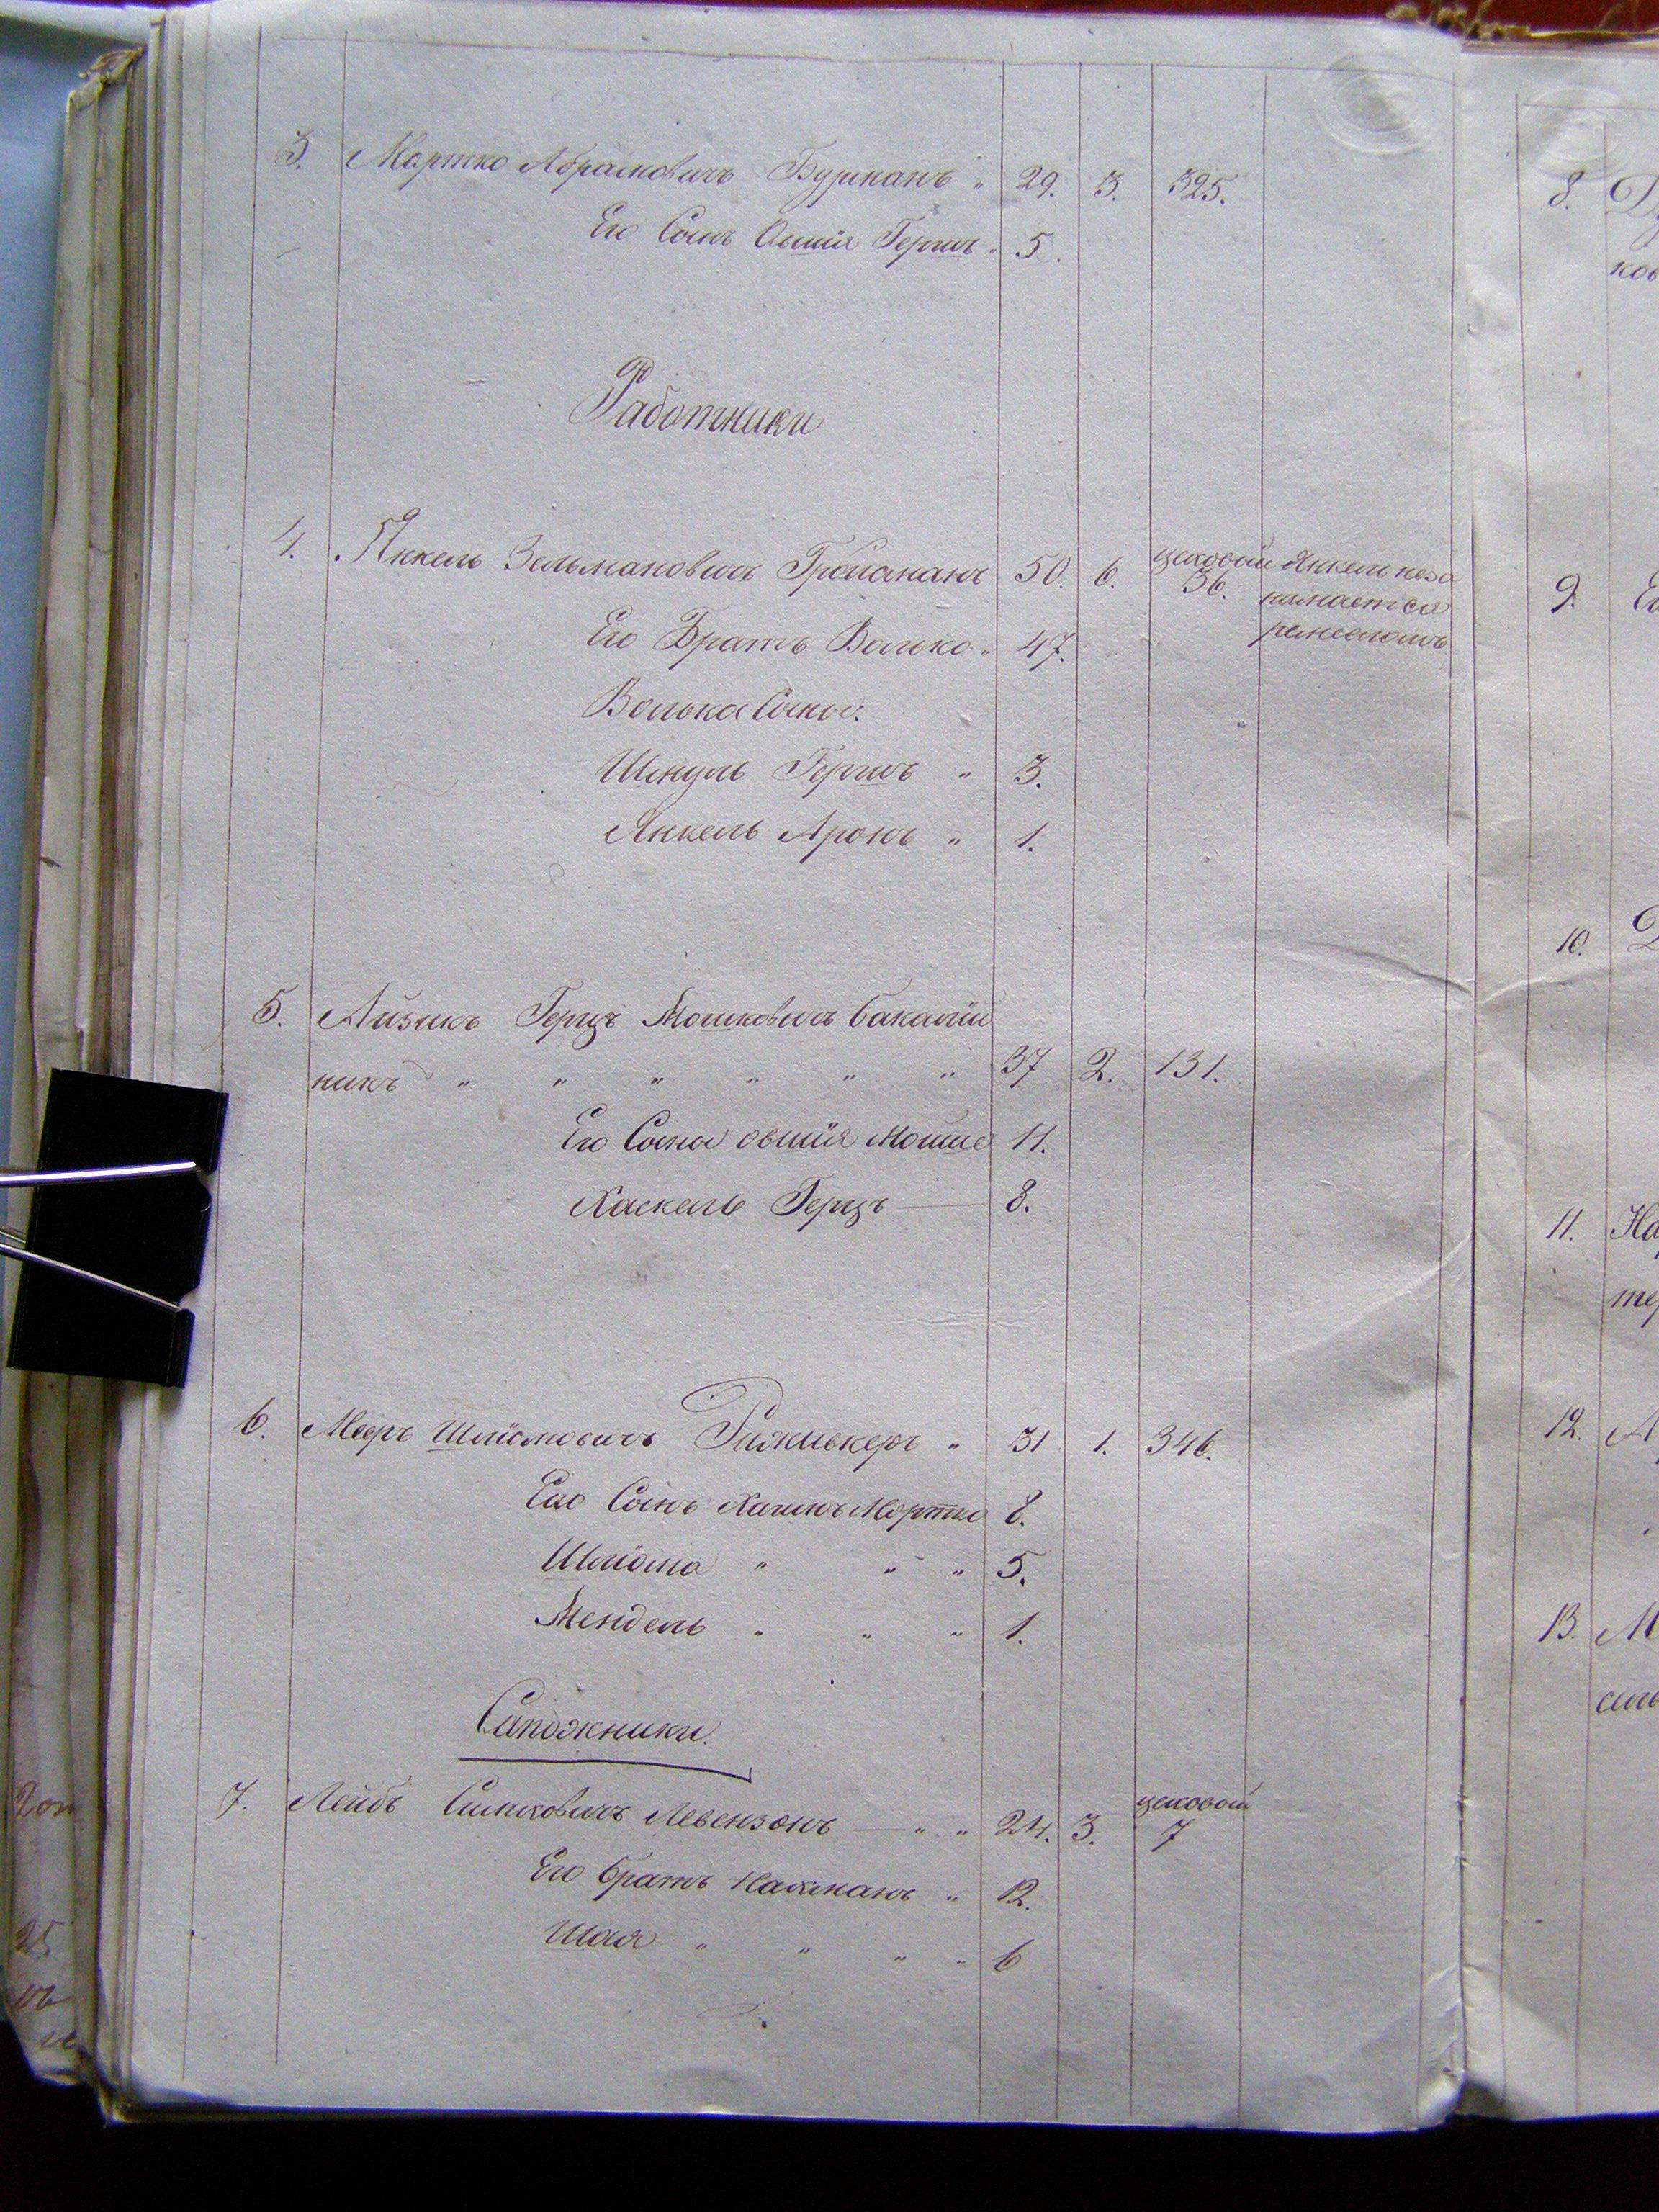 3. Мортко Абрамовичъ Бурманъ „ 29. 3. 325.
Его Сынъ Овшія Гершъ „ 5.
Работники
4. Янкель Зельмановичъ Гройсманъ 50. 6. цеховой 36. Янкель неза
нимается
ремесломъ
Его Братъ Волько „ 47.
Волька Сыны:
Шмуль Гершъ „ 3.
Янкель Аронъ „ 1.
5. Айзикъ Герцъ Мошковичъ Бакалій
никъ „ „ „ „ „ „ 37 2. 131.
Его Сыны Овшія Мошко 11.
Хаскель Герцъ — 8.
6. Меэръ Шліомовичъ „ 31 1. 346.
Его Сынъ Хаимъ Мортко 8.
Шліома „ „ „ 5.
Мендель „ „ „ 1.
Сапожники.
7. Лейбъ Симховичъ Левензонъ — „ „ 24. 3. цеховой 7
Его братъ Нахманъ „ 12.
Шая „ „ „ „ 6
8.
ков
9.
10.
11. На
тер
12. А
13. М
силь